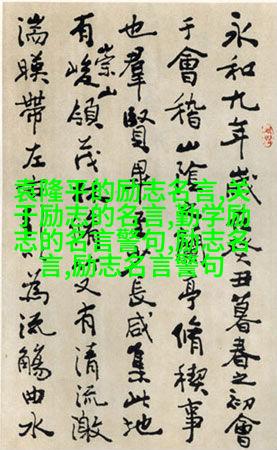 永和九年歲癸丑暮春之初會
于會稽山陰亭脩稧事
也羣賢畢至長咸集此地
有崇山峻領茂又有清流激
湍暎帶左為流觴曲水
袁隆平的励志名言,关
于励志的名言,勤学励
志的名言警句,励志名
言,励志名言警句